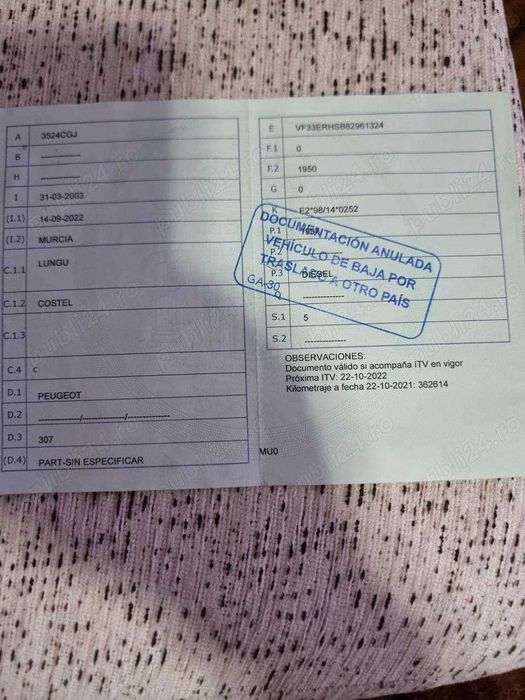 A 3524CGJ
B -------------
H -------------
I 31-03-2003
(I.1) 14-09-2022
(I.2) MURCIA
C.1.1 LUNGU
C.1.2 COSTEL
C.1.3
C.4 c
D.1 PEUGEOT
D.2 -------------/-------------/-------------
D.3 307
(D.4) PART-SIN ESPECIFICAR
E VF33ERHSB82961324
F.1 0
F.2 1950
G 0
K E2*98/14*0252
P.1
P.2
P.3 DIESEL
Q -------------
S.1 5
S.2 -------------
DOCUMENTACIÓN ANULADA
VEHÍCULO DE BAJA POR
TRASLADO A OTRO PAÍS
GA-30
OBSERVACIONES:
Documento válido si acompaña ITV en vigor
Próxima ITV: 22-10-2022
Kilometraje a fecha 22-10-2021: 362614
MU0
publi24.ro